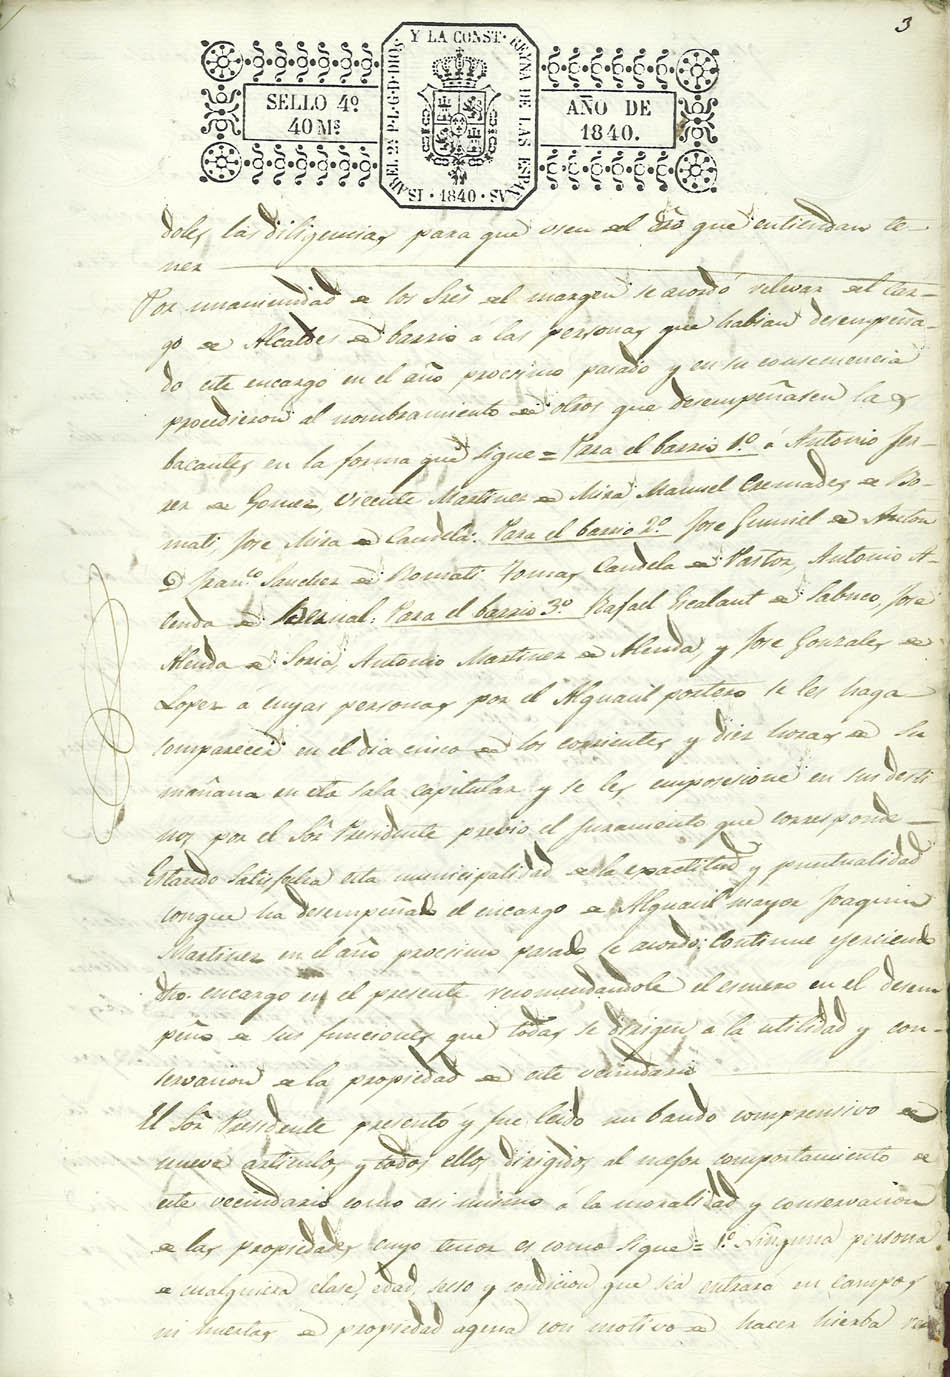 3
ISABEL 2ª P.L.G.D.DIOS Y LA CONST. REYNA DE LAS ESPAÑAS · 1840 ·
SELLO 4º
40 Mˢ
AÑO DE
1840.
doles las diligencias para que usen del dro que entiendan te-
ner
Por unanimidad de los Sres del margen se acordó relevar del car-
go de Alcaldes de barrio á las personas que habian desempeña-
do este encargo en el año procsimo pasado y en su consecuencia
procedieron al nombramiento de otros que desempeñasen las
bacantes en la forma que sigue = Para el barrio 1º á Antonio Fer-
rer de Gomez, Vicente Martinez de Mira Manuel Cremades de Bo-
mati, Jose Mira de Candela: Para el barrio 2º Jose Gumiel de Anton
D Franco Sanchez de Bomati Tomas Candela de Pastor, Antonio A-
lenda de Bernal: Para el barrio 3º Rafael Escalant de Sabuco, Jose
Alenda de Soria, Antonio Martinez de Alenda, y Jose Gonzales de
Lopez á cuyas personas por el Alguacil portero se les haga
comparecer en el dia cinco de los corrientes y diez horas de su
mañana en esta sala capitular y se les emposesione en sus desti
nos por el Sor Presidente prebio el juramento que corresponde
Estando satisfecha esta municipalidad de la exactitud y puntualidad
conque ha desempeñado el encargo de Alguacil mayor Joaquin
Martinez en el año procsimo pasado, se acordó: Continue ejerciendo
dho. encargo en el presente recomendandole el esmero en el desem
peño de sus funciones que todas se dirigen á la utilidad y con-
servacion de la propiedad de este vecindario
El Sor Presidente presentó y fue leido un bando comprensivo de
nueve articulos y todos ellos dirigidos al mejor comportamiento de
este vecindario como asi mismo á la moralidad y conservacion
de las propiedades cuyo tenor es como sigue = 1º Ninguna persona
de cualquiera clase, edad, secso y condicion que sea entrará en campos
ni huertas de propiedad agena con motivo de hacer hierba